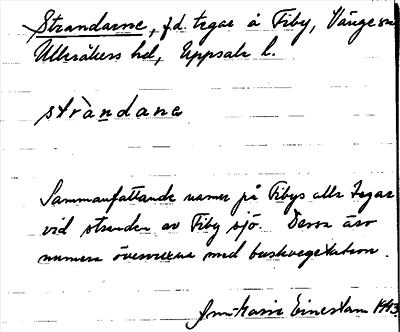 Strandarne, f.d. tegar å Fiby, Vänge sn
Ulleråkers hd, Uppsala l.
stràndana
Sammanfattande namn på Fibys alla tegar
vid stranden av Fiby sjö. Dessa äro
numera övervuxna med buskvegetation.
Einestam 1943